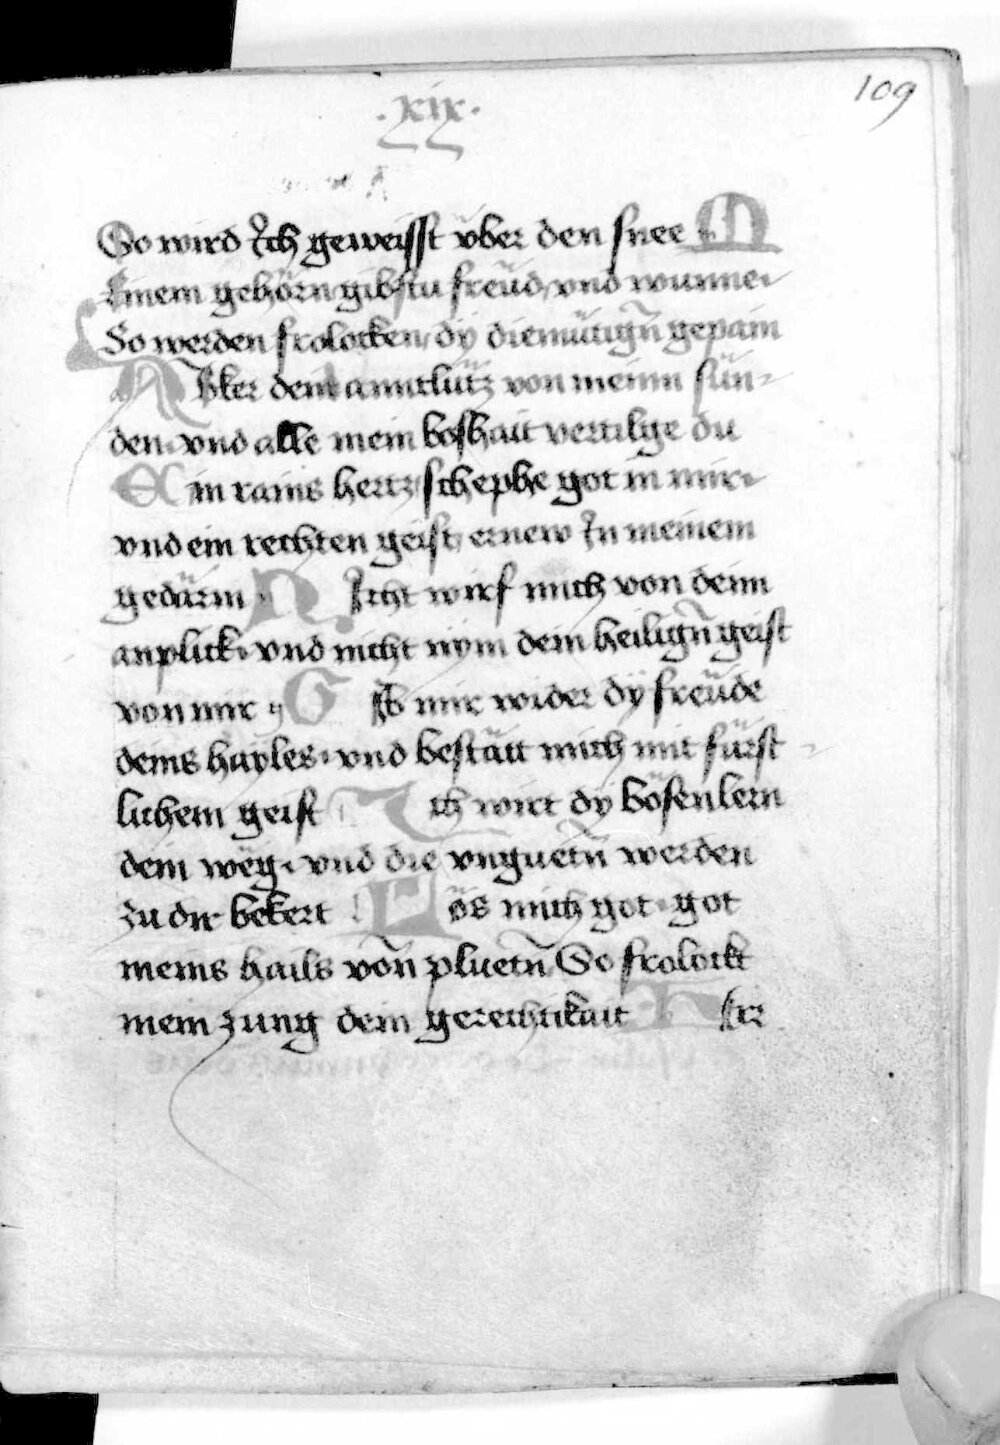 109
.xix.
So wird ich geweisst über den snee M
Einem gehörn gibstu freüd vnd wunne
So werden frolocken dÿ diemütigñ gepain
A Bker dein anntlütz von meinn sün-
den vnd alle mein boshait vertilge du
E in rains hertz schephe got in mir
vnd ein rechten geist ernew In meinem
gedärm N Icht wirf mich von deim
anplick vnd nicht nÿm dein heiligñ geist
von mir G Ib mir wider dÿ freüde
deins hayles vnd bestätt mich mit fürst
lichem geist I ch wirt dÿ bösen lern
dein weg vnd die vnguetñ werden
zu dir bekert L ös mich got got
meins hails von pluetñ So frolockt
mein zung dein gerechtikait H Er